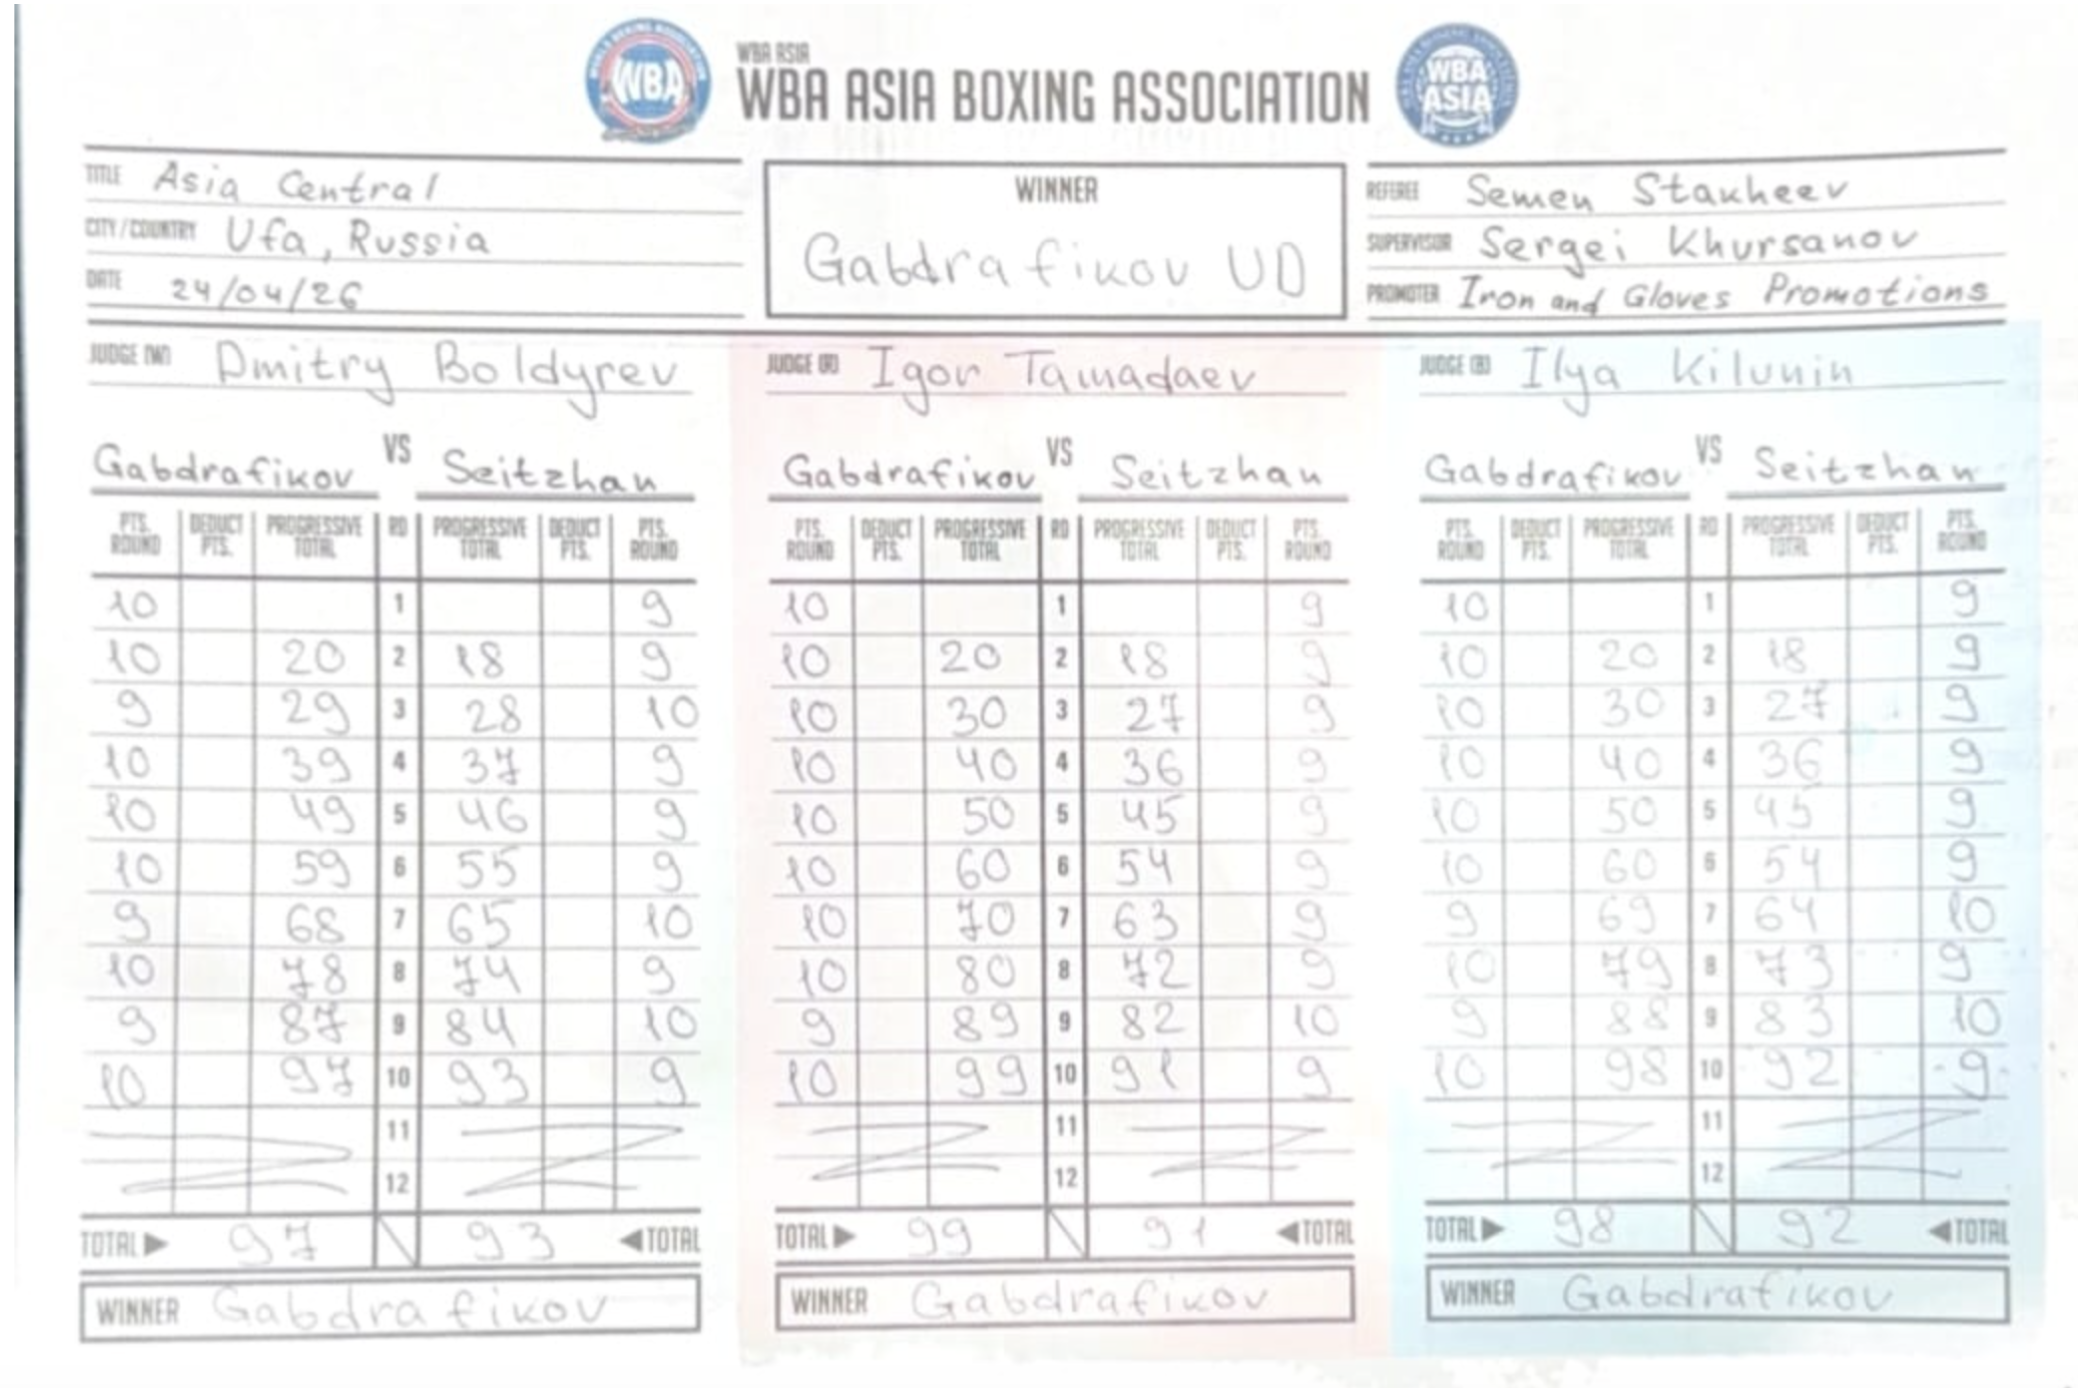 WBA
WBA ASIA
WBA ASIA BOXING ASSOCIATION
WBA ASIA
TITLE Asia Central
CITY/COUNTRY Ufa, Russia
DATE 24/04/26
WINNER
Gabdrafikov UD
REFEREE Semen Stakheev
SUPERVISOR Sergei Khursanov
PROMOTER Iron and Gloves Promotions
JUDGE (W) Dmitry Boldyrev
Gabdrafikov VS Seitzhan
PTS. ROUND DEDUCT PTS. PROGRESSIVE TOTAL RD PROGRESSIVE TOTAL DEDUCT PTS. PTS. ROUND
10 1 9
10 20 2 18 9
9 29 3 28 10
10 39 4 37 9
10 49 5 46 9
10 59 6 55 9
9 68 7 65 10
10 78 8 74 9
9 87 9 84 10
10 97 10 93 9
11
12
TOTAL 97 93 TOTAL
WINNER Gabdrafikov
JUDGE (R) Igor Tamadaev
Gabdrafikov VS Seitzhan
PTS. ROUND DEDUCT PTS. PROGRESSIVE TOTAL RD PROGRESSIVE TOTAL DEDUCT PTS. PTS. ROUND
10 1 9
10 20 2 18 9
10 30 3 27 9
10 40 4 36 9
10 50 5 45 9
10 60 6 54 9
10 70 7 63 9
10 80 8 72 9
9 89 9 82 10
10 99 10 91 9
11
12
TOTAL 99 91 TOTAL
WINNER Gabdrafikov
JUDGE (B) Ilya Kilunin
Gabdrafikov VS Seitzhan
PTS. ROUND DEDUCT PTS. PROGRESSIVE TOTAL RD PROGRESSIVE TOTAL DEDUCT PTS. PTS. ROUND
10 1 9
10 20 2 18 9
10 30 3 27 9
10 40 4 36 9
10 50 5 45 9
10 60 6 54 9
9 69 7 64 10
10 79 8 73 9
9 88 9 83 10
10 98 10 92 9
11
12
TOTAL 98 92 TOTAL
WINNER Gabdrafikov